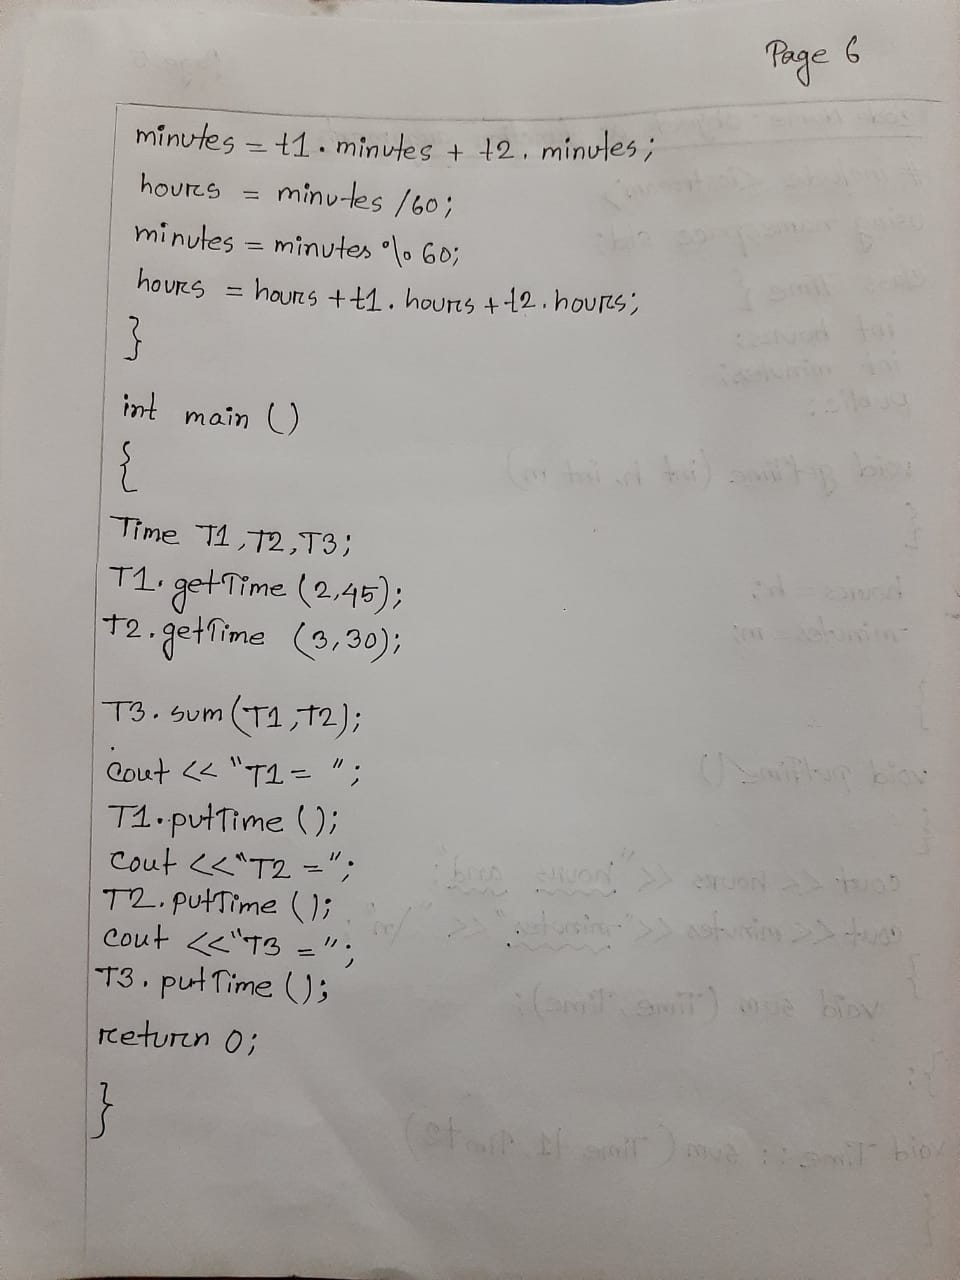 Page 6
minutes = t1. minutes + t2. minutes;
hours = minutes /60;
minutes = minutes % 60;
hours = hours + t1. hours + t2. hours;
}
int main ()
{
Time T1, T2, T3;
T1. getTime (2,45);
T2. getTime (3,30);
T3. sum (T1, T2);
cout << "T1 = ";
T1. putTime ();
Cout << "T2 =";
T2. putTime ();
Cout << "T3 =";
T3. putTime ();
return 0;
}